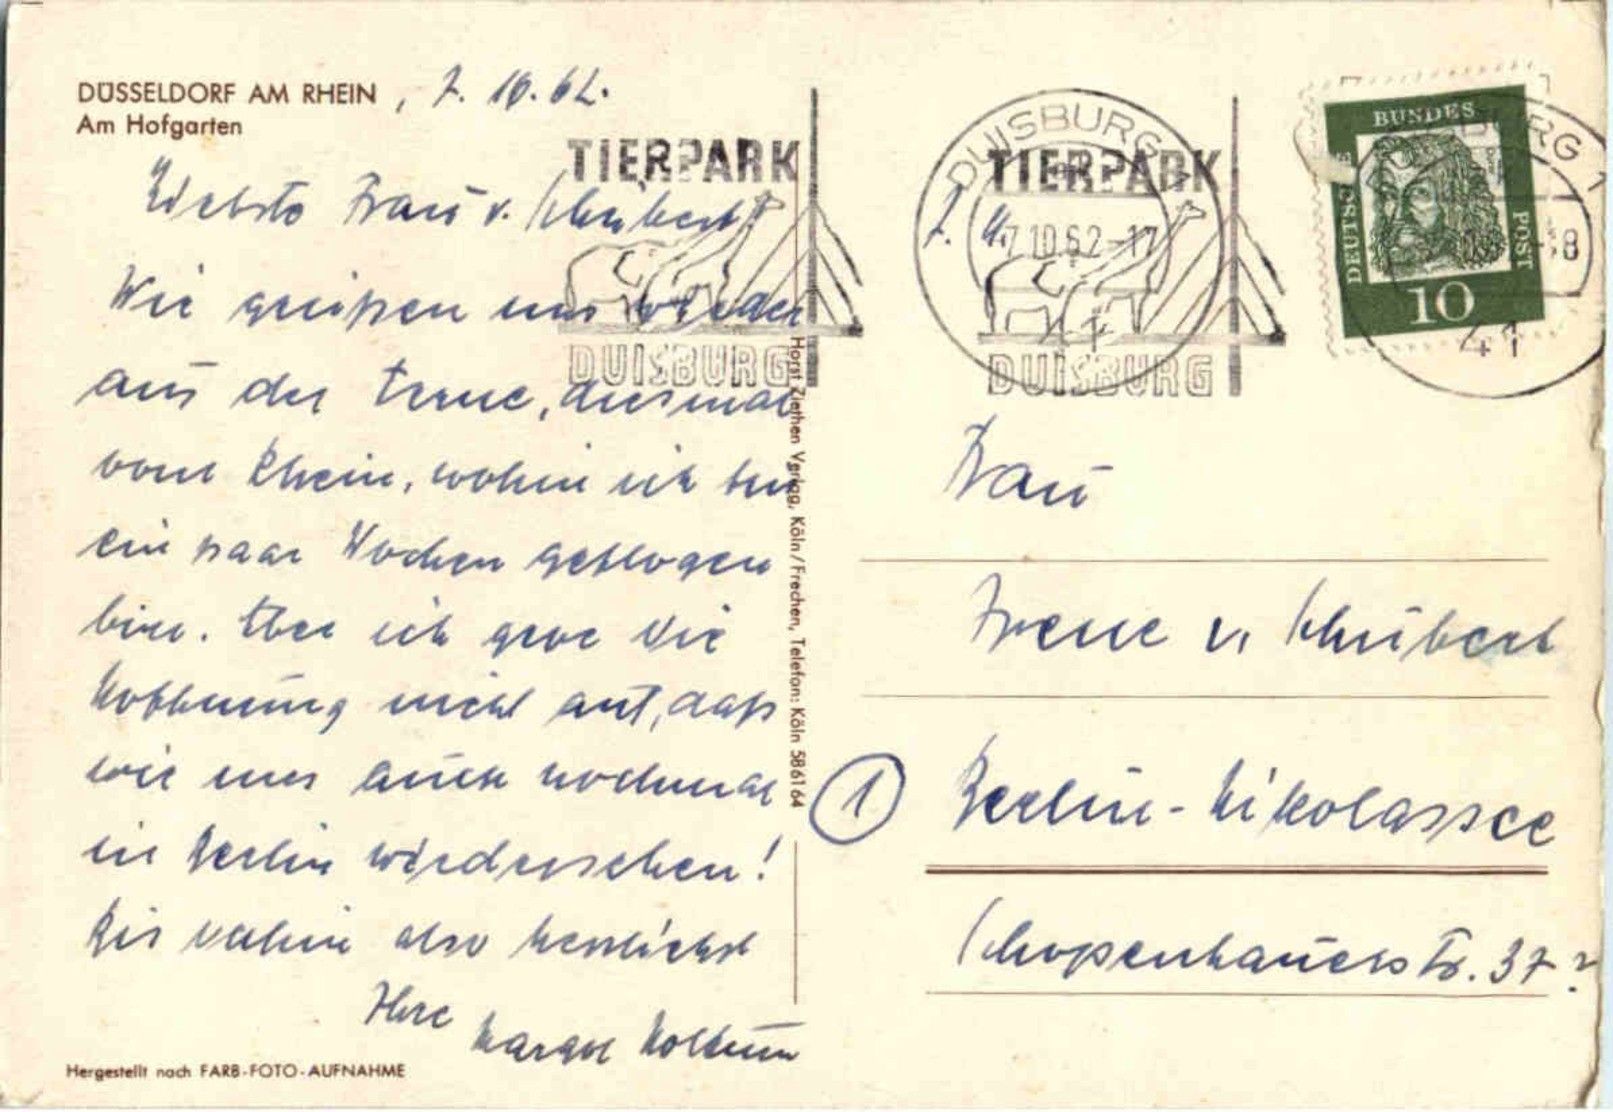 DÜSSELDORF AM RHEIN, 7. 10. 62.
Am Hofgarten
Liebste Frau v. Schubert
Wir grüßen uns wieder
aus der Ferne, diesmal
vom Rhein, wohin ich für
ein paar Wochen geflogen
bin. Aber ich gebe die
Hoffnung nicht auf, daß
wir uns auch nochmal
in Berlin wiedersehen!
Bis dahin also herzlichst
Ihre
Margot
Hergestellt nach FARB-FOTO-AUFNAHME
Horst Ziethen Verlag, Köln/Frechen, Telefon: Köln 586164
TIERPARK
DUISBURG
DUISBURG 1
7.10.62-17
TIERPARK
DUISBURG
DEUTSCHE
BUNDES
POST
10
41
Frau
Irene v. Schubert
1 Berlin-Nikolassee
Schopenhauerstr. 37?